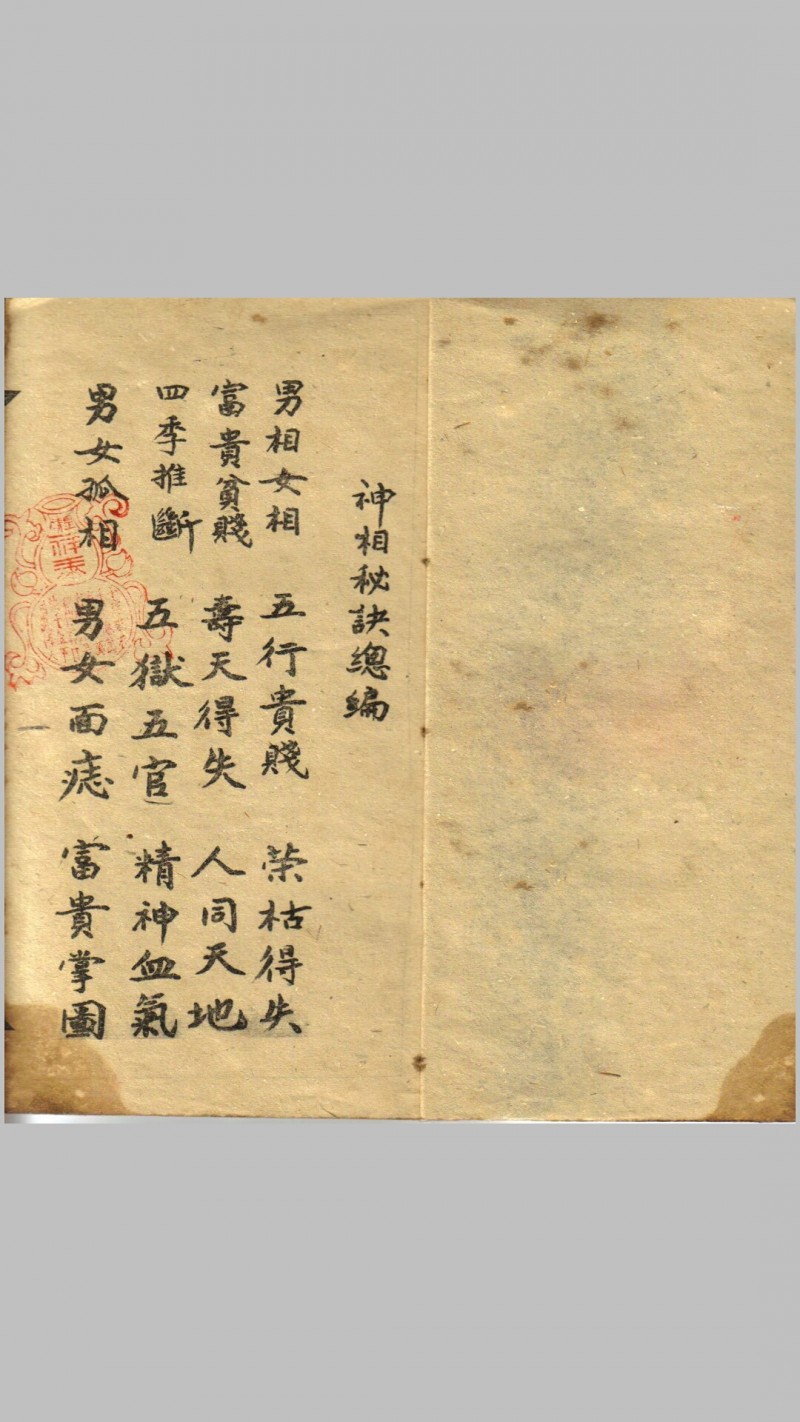 神相秘訣總編
男相女相 五行貴賤 荣枯得失
富貴貧賤 壽夭得失 人同天地
四季推斷 五獄五官 精神血氣
男女孤相 男女面痣 富貴掌圖